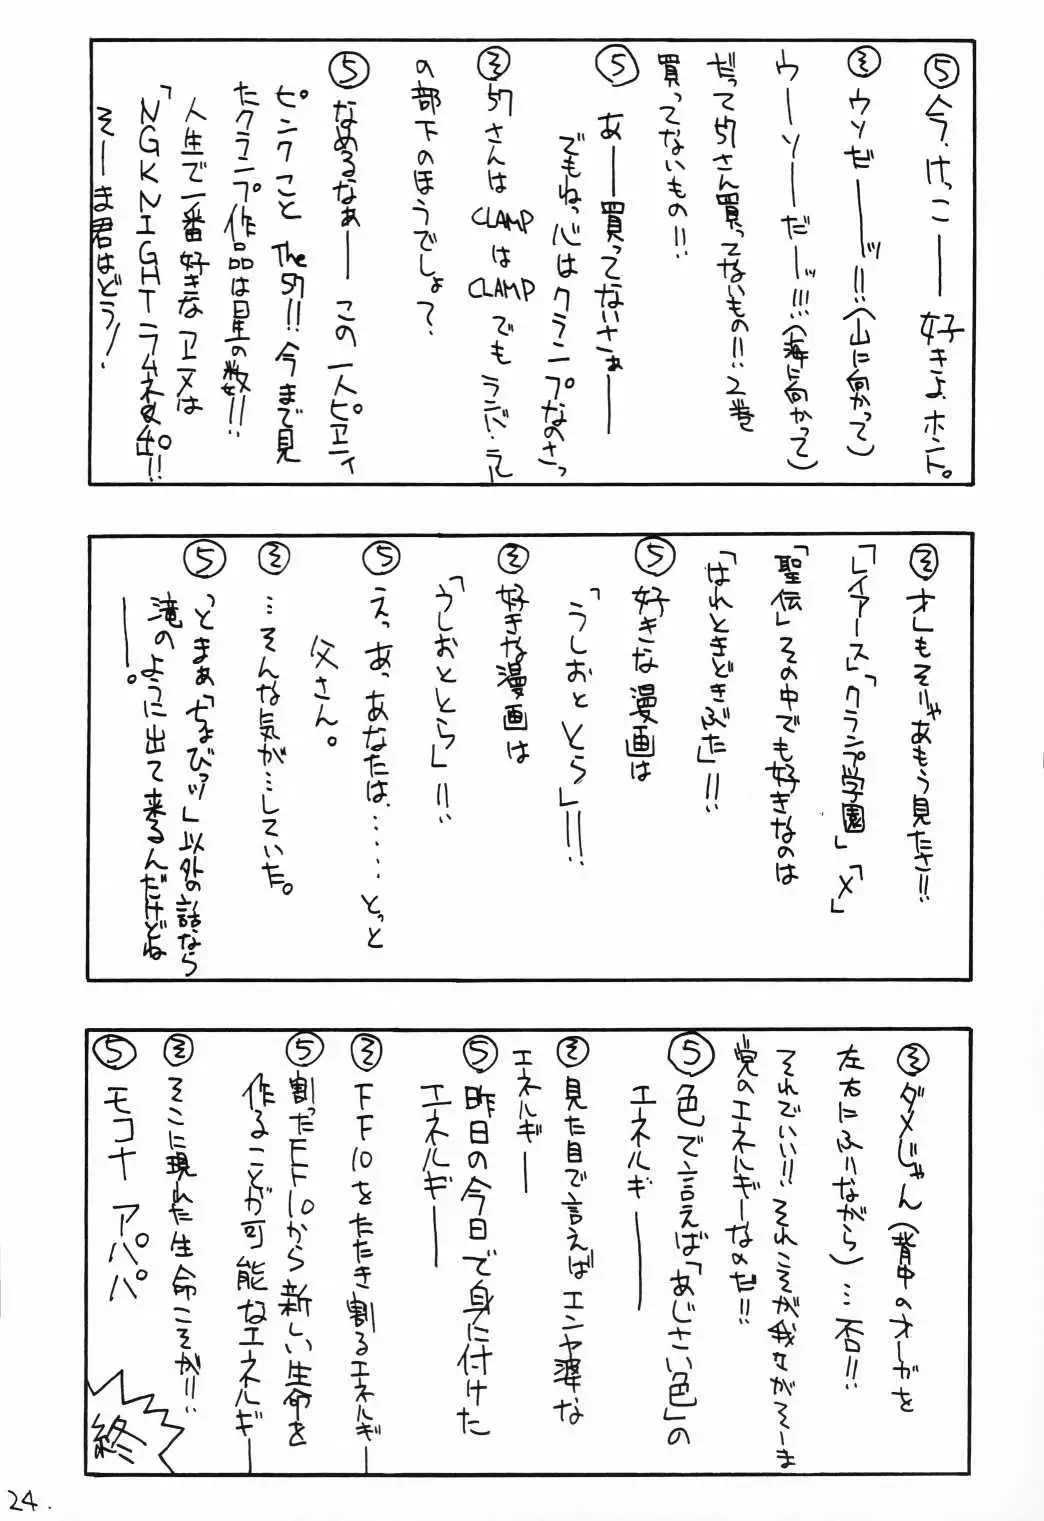 ⑤今、けっこ――好きよ、ホント。
㋞ウソぜ――ッ!!(山に向かって)
ウーソーだーッ!!!(海に向かって)
だって57さん買ってないもの!!2巻
買ってないもの!!
⑤あ――買ってないさぁ――
でもねっ心はクランプなのさっ
㋞57さんはCLAMPはCLAMPでもランバ・ラル
の部下のほうでしょ?
⑤なめるなぁ――この一人ピヱニィ
ピンクことThe57!!今まで見
たクランプ作品は星の数!!
人生で一番好きなアニメは
「NGKNIGHTラムネ&40!!
そーま君はどう!
㋞オレもそりゃあもう見たさ!!
「レイアース」「クランプ学園」「X」
「聖伝」その中でも好きなのは
「はれときどきぶた」!!
⑤好きな漫画は
「うしおととら」!!!
㋞好きな漫画は
「うしおととら」!!
⑤えっあっあなたは……とっと
父さん。
㋞…そんな気が…していた。
⑤っとまぁ「ちょびッツ」以外の話なら
滝のように出て来るんだけどね
――。
㋞ダメじゃん(背中のオーガを
左右にふりながら)…否!!
それでいい!!それこそが我ながそーま
党のエネルギーなのだ!!
⑤色で言えば「あじさい色」の
エネルギ――
㋞見た目で言えばエンヤ婆な
エネルギー
⑤昨日の今日で身に付けた
エネルギ――
㋞FF10をたたき割るエネルギ――
⑤割ったFF10から新しい生命を
作ることが可能なエネルギ――
㋞そこに現れた生命こそが!!
⑤モコナ アパパ
終
24.